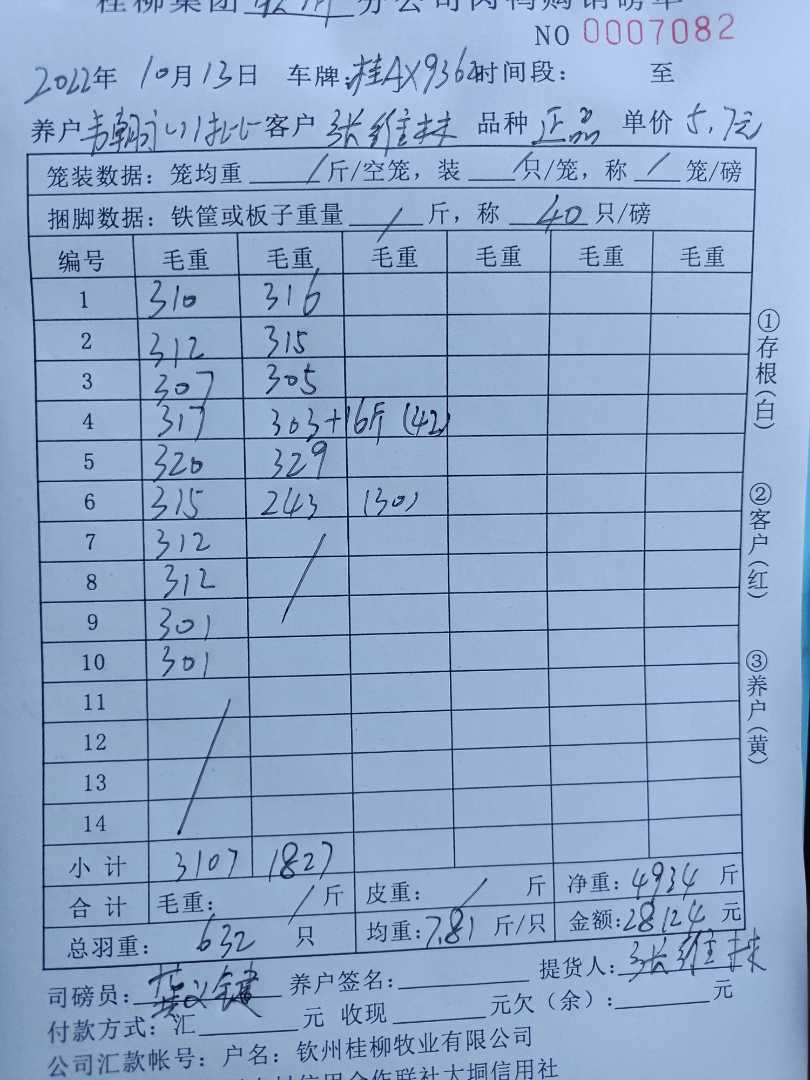 桂柳集团 分公司肉鸭购销磅单
NO 0007082
2022年 10月13日 车牌:桂AX9362 时间段: 至
养户 客户 张维林 品种 正品 单价 5.7元
笼装数据: 笼均重 / 斤/空笼, 装 / 只/笼, 称 / 笼/磅
捆脚数据: 铁筐或板子重量 / 斤, 称 40 只/磅
编号 毛重 毛重 毛重 毛重 毛重 毛重
1 310 316
2 312 315
3 307 305
4 317 303+16斤 (42)
5 320 329
6 315 243 (30)
7 312 /
8 312
9 301
10 301
11 /
12
13
14
小计 3107 1827
合计 毛重: / 斤 皮重: / 斤 净重: 4934 斤
总羽重: 632 只 均重: 7.81 斤/只 金额: 28124 元
司磅员: 养户签名: 提货人: 张维林
付款方式: 汇 元 收现 元欠(余): 元
公司汇款帐号: 户名: 钦州桂柳牧业有限公司
信用合作联社大垌信用社
①存根(白)
②客户(红)
③养户(黄)